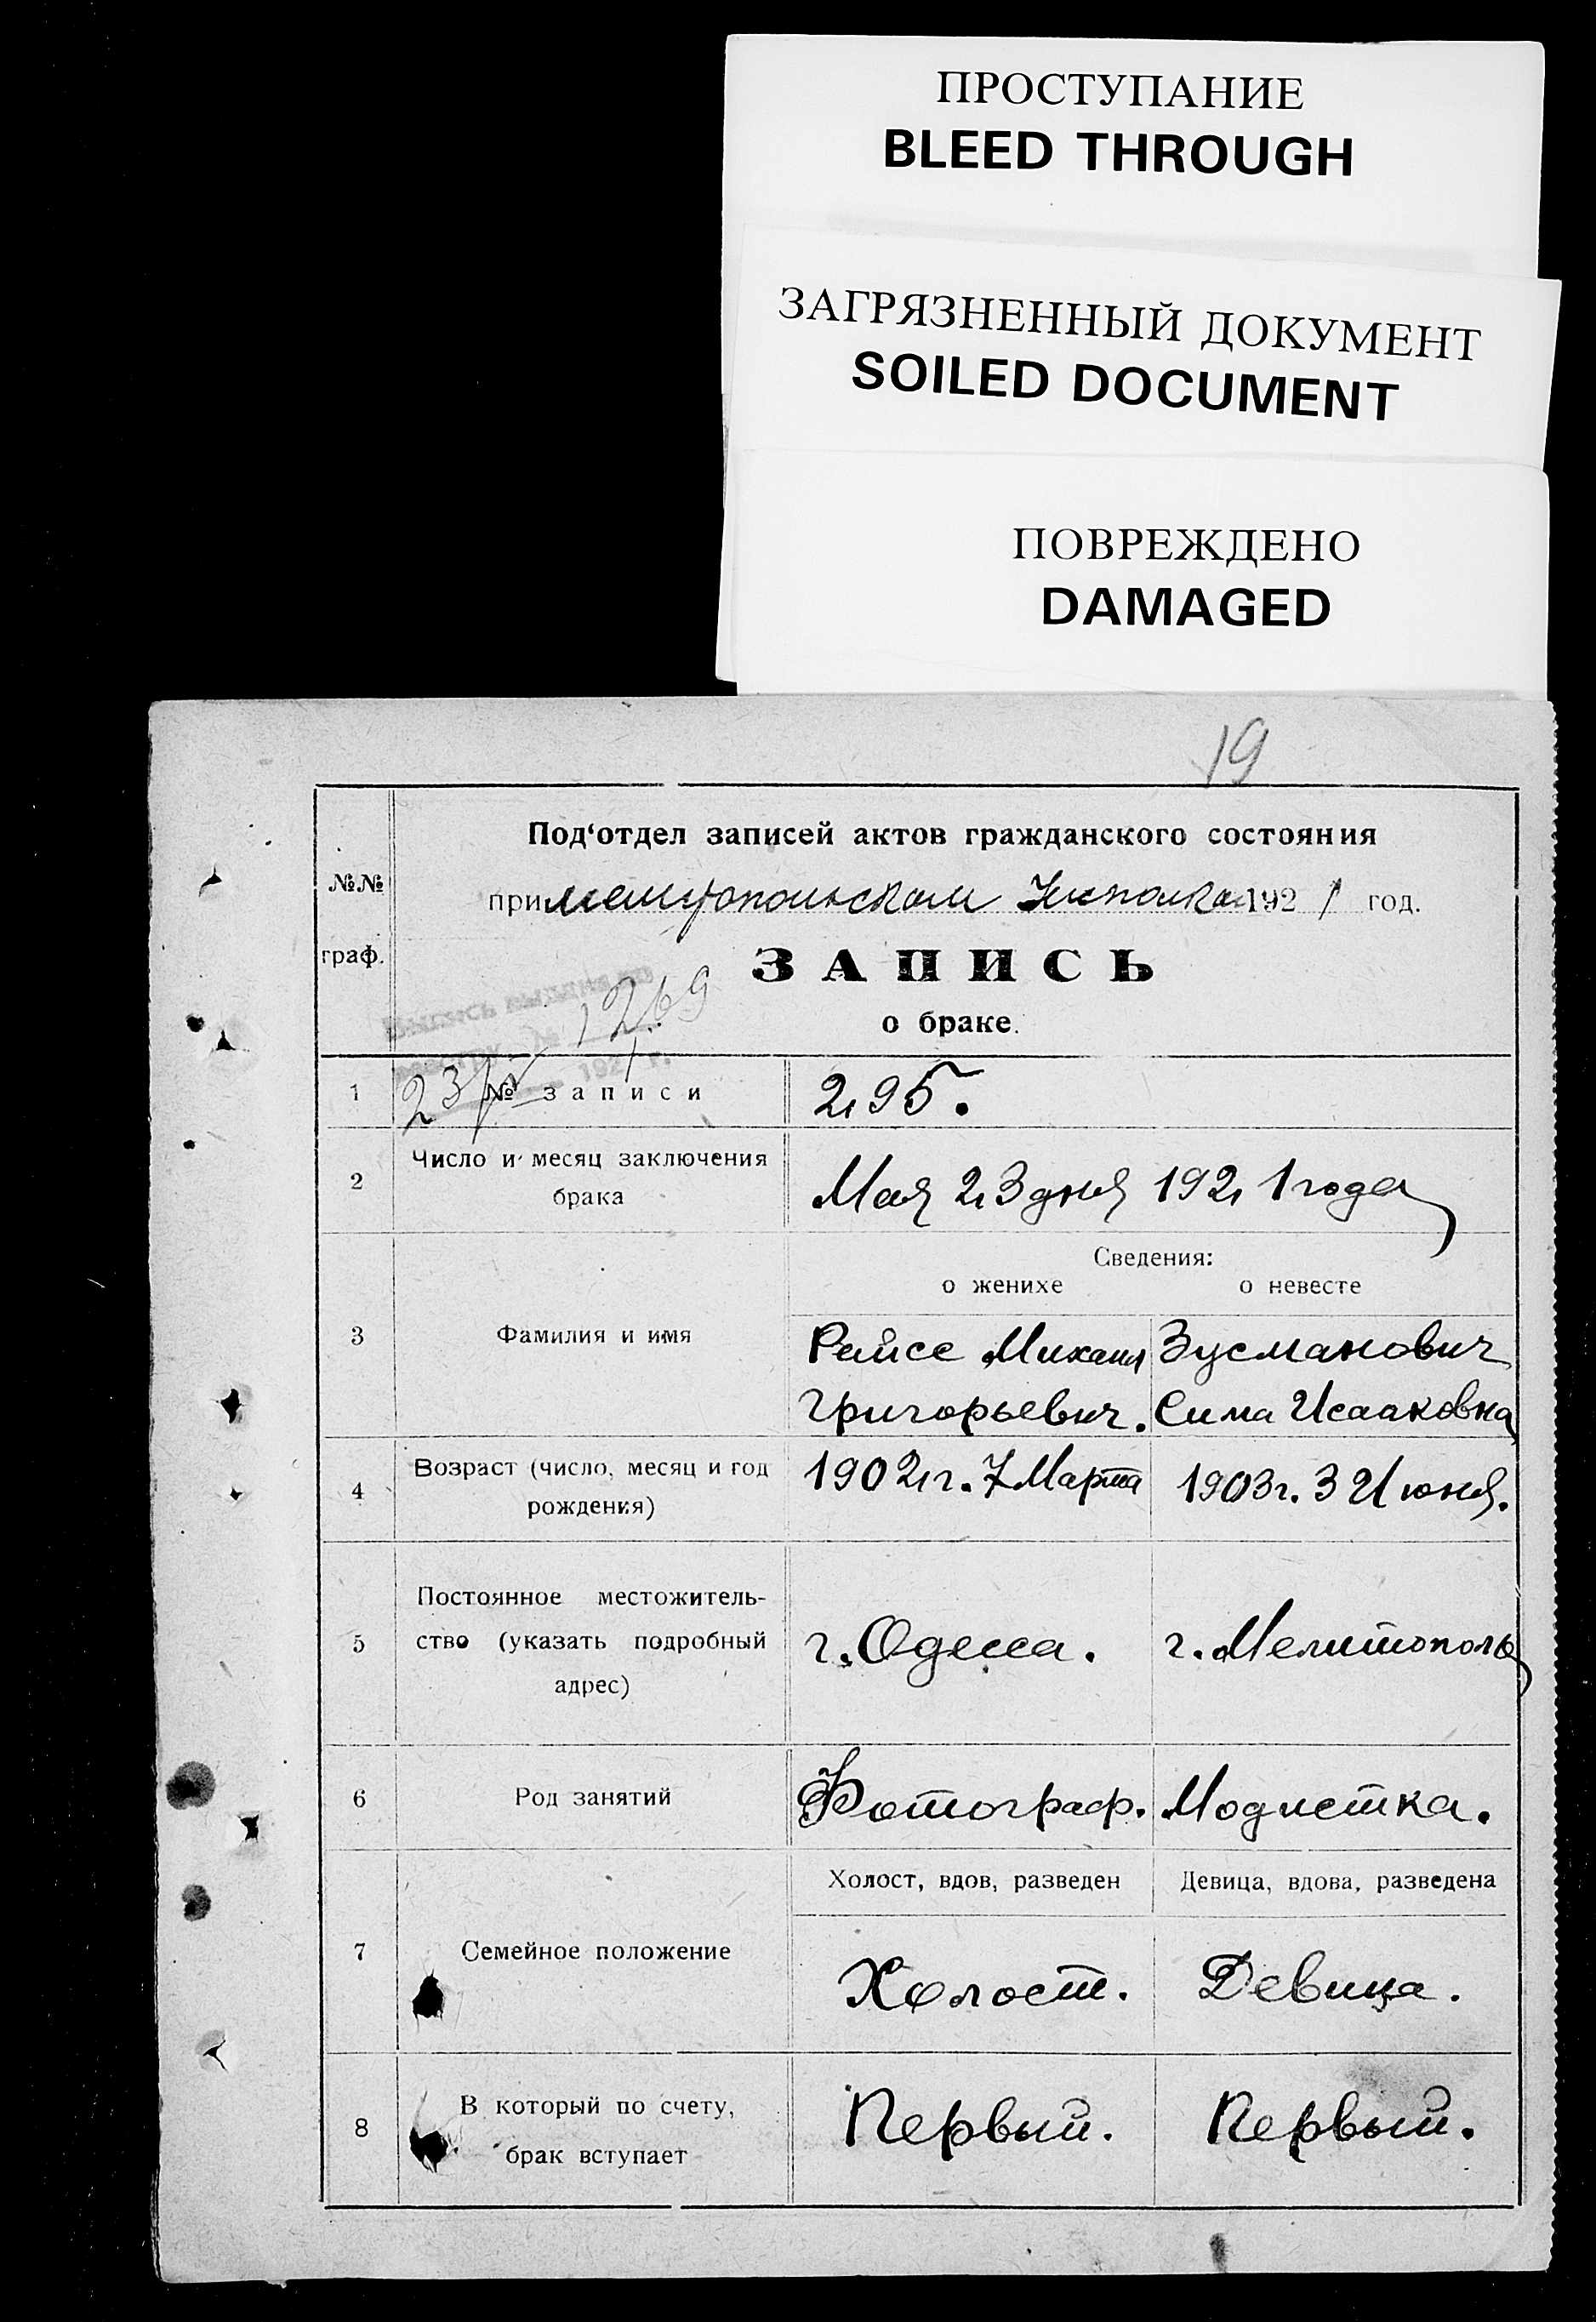 ПРОСТУПАНИЕ
BLEED THROUGH
ЗАГРЯЗНЕННЫЙ ДОКУМЕНТ
SOILED DOCUMENT
ПОВРЕЖДЕНО
DAMAGED
19
№№ граф.
Под‘отдел записей актов гражданского состояния
при 1921 год.
ЗАПИСЬ
о браке.
1269
192 г.
1 № записи 295.
2 Число и месяц заключения
брака
Мая 23 дня 1921 года
Сведения:
о женихе о невесте
3 Фамилия и имя
Райсе Михаил Зусманович
Григорьевич. Сима Исааковна
4 Возраст (число, месяц и год
рождения)
1902 г. 7 Марта 1903 г. 3 Июня.
5 Постоянное местожитель-
ство (указать подробный
адрес)
г. Одесса. г. Мелитополь
6 Род занятий Фотограф. Модистка.
Холост, вдов, разведен Девица, вдова, разведена
7 Семейное положение Холост. Девица.
8 В который по счету,
брак вступает
Первый. Первый.